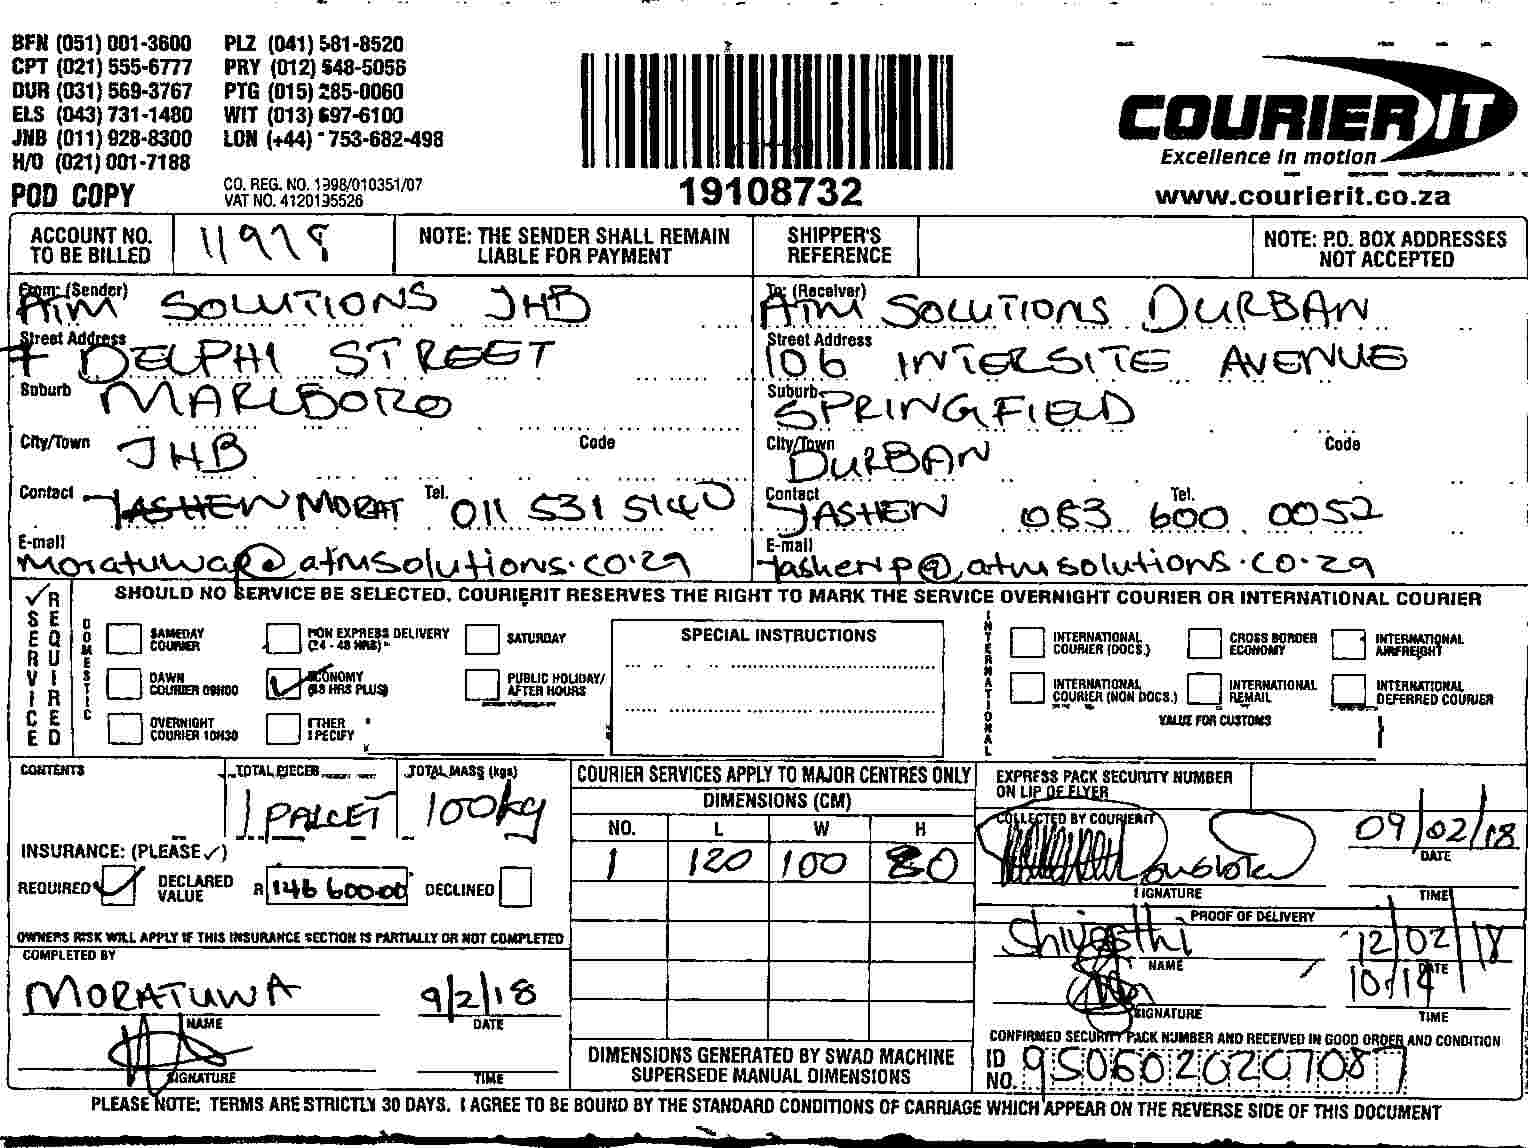 BFN (051) 001-3600 PLZ (041) 581-8520
CPT (021) 555-6777 PRY (012) 648-5056
DUR (031) 569-3767 PTG (015) 285-0060
ELS (043) 731-1480 WIT (013) 697-6100
JNB (011) 928-8300 LON (+44) 753-682-498
H/O (021) 001-7188
POD COPY
CO. REG. NO. 1998/010351/07
VAT NO. 4120195526
19108732
COURIER IT
Excellence in motion
www.courierit.co.za
ACCOUNT NO. TO BE BILLED 11978
NOTE: THE SENDER SHALL REMAIN LIABLE FOR PAYMENT
SHIPPER'S REFERENCE
NOTE: P.O. BOX ADDRESSES NOT ACCEPTED
From: (Sender) ATM SOLUTIONS JHB
Street Address 7 DELPHI STREET
Suburb MARLBORO
City/Town JHB Code
Contact MORAT Tel. 011 531 5140
E-mail moratuwap@atmsolutions.co.za
To: (Receiver) ATM SOLUTIONS DURBAN
Street Address 106 INTERSITE AVENUE
Suburb SPRINGFIELD
City/Town DURBAN Code
Contact TASHEN Tel. 083 600 0052
E-mail tashenp@atmsolutions.co.za
SERVICE REQUIRED
SHOULD NO SERVICE BE SELECTED, COURIERIT RESERVES THE RIGHT TO MARK THE SERVICE OVERNIGHT COURIER OR INTERNATIONAL COURIER
DOMESTIC
SAMEDAY COURIER
NON EXPRESS DELIVERY (24 - 48 HRS)
SATURDAY
DAWN COURIER 09H00
✓ ECONOMY (48 HRS PLUS)
PUBLIC HOLIDAY/ AFTER HOURS
OVERNIGHT COURIER 10H30
OTHER SPECIFY
SPECIAL INSTRUCTIONS
INTERNATIONAL
INTERNATIONAL COURIER (DOCS.)
CROSS BORDER ECONOMY
INTERNATIONAL AIRFREIGHT
INTERNATIONAL COURIER (NON DOCS.)
INTERNATIONAL REMAIL
INTERNATIONAL DEFERRED COURIER
VALUE FOR CUSTOMS
CONTENTS
TOTAL PIECES 1 PALLET
TOTAL MASS (kgs) 100kg
INSURANCE: (PLEASE ✓)
REQUIRED ✓ DECLARED VALUE R 146 600.00 DECLINED
OWNERS RISK WILL APPLY IF THIS INSURANCE SECTION IS PARTIALLY OR NOT COMPLETED
COMPLETED BY
MORATUWA 9/2/18
NAME DATE
SIGNATURE TIME
COURIER SERVICES APPLY TO MAJOR CENTRES ONLY
DIMENSIONS (CM)
NO. L W H
1 120 100 80
DIMENSIONS GENERATED BY SWAD MACHINE SUPERSEDE MANUAL DIMENSIONS
EXPRESS PACK SECURITY NUMBER ON LIP OF FLYER
COLLECTED BY COURIERIT
09/02/18
DATE
SIGNATURE TIME
PROOF OF DELIVERY
12/02/18
NAME DATE
10:14
SIGNATURE TIME
CONFIRMED SECURITY PACK NUMBER AND RECEIVED IN GOOD ORDER AND CONDITION
ID NO. 9506020207087
PLEASE NOTE: TERMS ARE STRICTLY 30 DAYS. I AGREE TO BE BOUND BY THE STANDARD CONDITIONS OF CARRIAGE WHICH APPEAR ON THE REVERSE SIDE OF THIS DOCUMENT